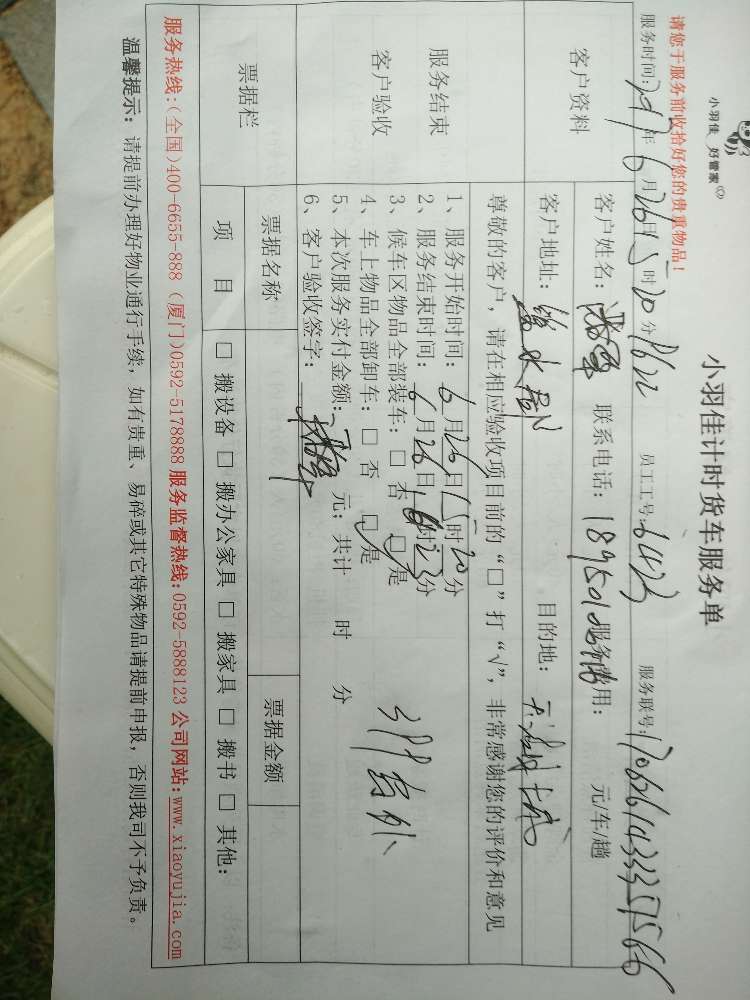 小羽佳 好管家
小羽佳计时货车服务单
请您于服务前收拾好您的贵重物品！
服务时间: 年6月26日15时20分 员工工号: 服务联号:
客户资料
客户姓名: 联系电话: 服务费用: 元/车/趟
客户地址: 目的地:
尊敬的客户，请在相应验收项目前的“□”打“√”，非常感谢您的评价和意见
服务结束
客户验收
1、服务开始时间: 6月26日15时20分
2、服务结束时间: 6月26日16时23分
3、候车区物品全部装车: □ 否 □ 是
4、车上物品全部卸车: □ 否 □ 是
5、本次服务实付金额: 元; 共计 时 分
6、客户验收签字:
票据栏
票据名称 票据金额
项 目 □ 搬设备 □ 搬办公家具 □ 搬家具 □ 搬书 □ 其他:
服务热线:(全国)400-6655-888 (厦门)0592-5178888 服务监督热线:0592-5888123 公司网站:www.xiaoyujia.com
温馨提示: 请提前办理好物业通行手续, 如有贵重、易碎或其它特殊物品请提前申报, 否则我司不予负责。